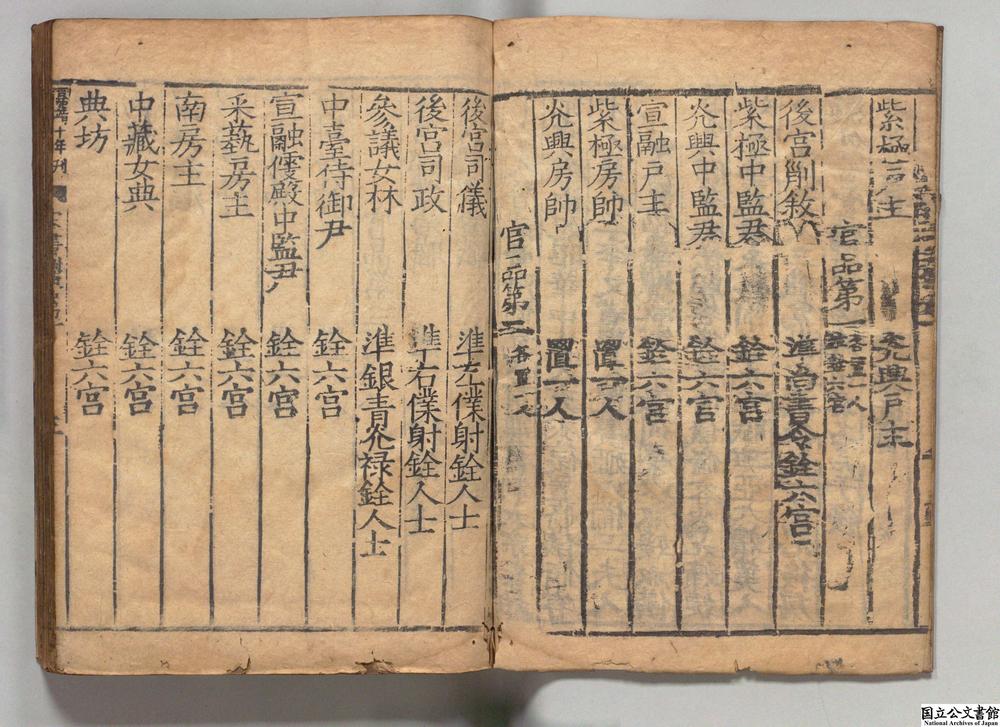 紫極戶主　光興戶主
官品第一
後宮削敘　准尚書令銓六宮
紫極中監尹　銓六宮
光興中監尹　銓六宮
宣融戶主　銓六宮
紫極房帥　置一人
光興房帥　置一人
官品第二　各置一人
後宮司儀　準左僕射銓人士
後宮司政　準右僕射銓人士
參議女林　準銀青光祿銓人士
中臺侍御尹　銓六宮
宣融便殿中監尹　銓六宮
采藝房主　銓六宮
南房主　銓六宮
中藏女典　銓六宮
典坊　銓六宮
十年刊
国立公文書館
National Archives of Japan